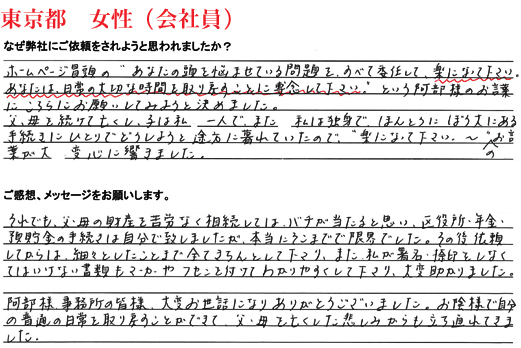 東京都　女性（会社員）
なぜ弊社にご依頼をされようと思われましたか？
ホームページ冒頭の“あなたの頭を悩ませている問題を、すべて委任して、楽になって下さい。
あなたは、日常の大切な時間を取り戻すことに専念して下さい。”という阿部様のお言葉
にこちらにお願いしてみようと決めました。
父、母を続けて亡くし、子は私一人で、また私は独身で、ほんとうにぼう大にある
手続きにひとりでどうしようと途方に暮れていたので、“楽になって下さい。～”のお言
葉が大変心に響きました。
ご感想、メッセージをお願いします。
それでも、父・母の財産を苦労なく相続しては、バチが当たると思い、区役所・年金・
預貯金の手続きは自分で致しましたが、本当にそこまでで限界でした。その後依頼
してからは、細々としたことまで全てきちんとして下さり、また、私が署名・捺印をしなく
てはいけない書類もマーカーやフセンを付けてわかりやすくして下さり、大変助かりました。
阿部様、事務所の皆様、大変お世話になりありがとうございました。お陰様で自分
の普通の日常を取り戻すことができて、父・母を亡くした悲しみからも立ち直れてきま
した。